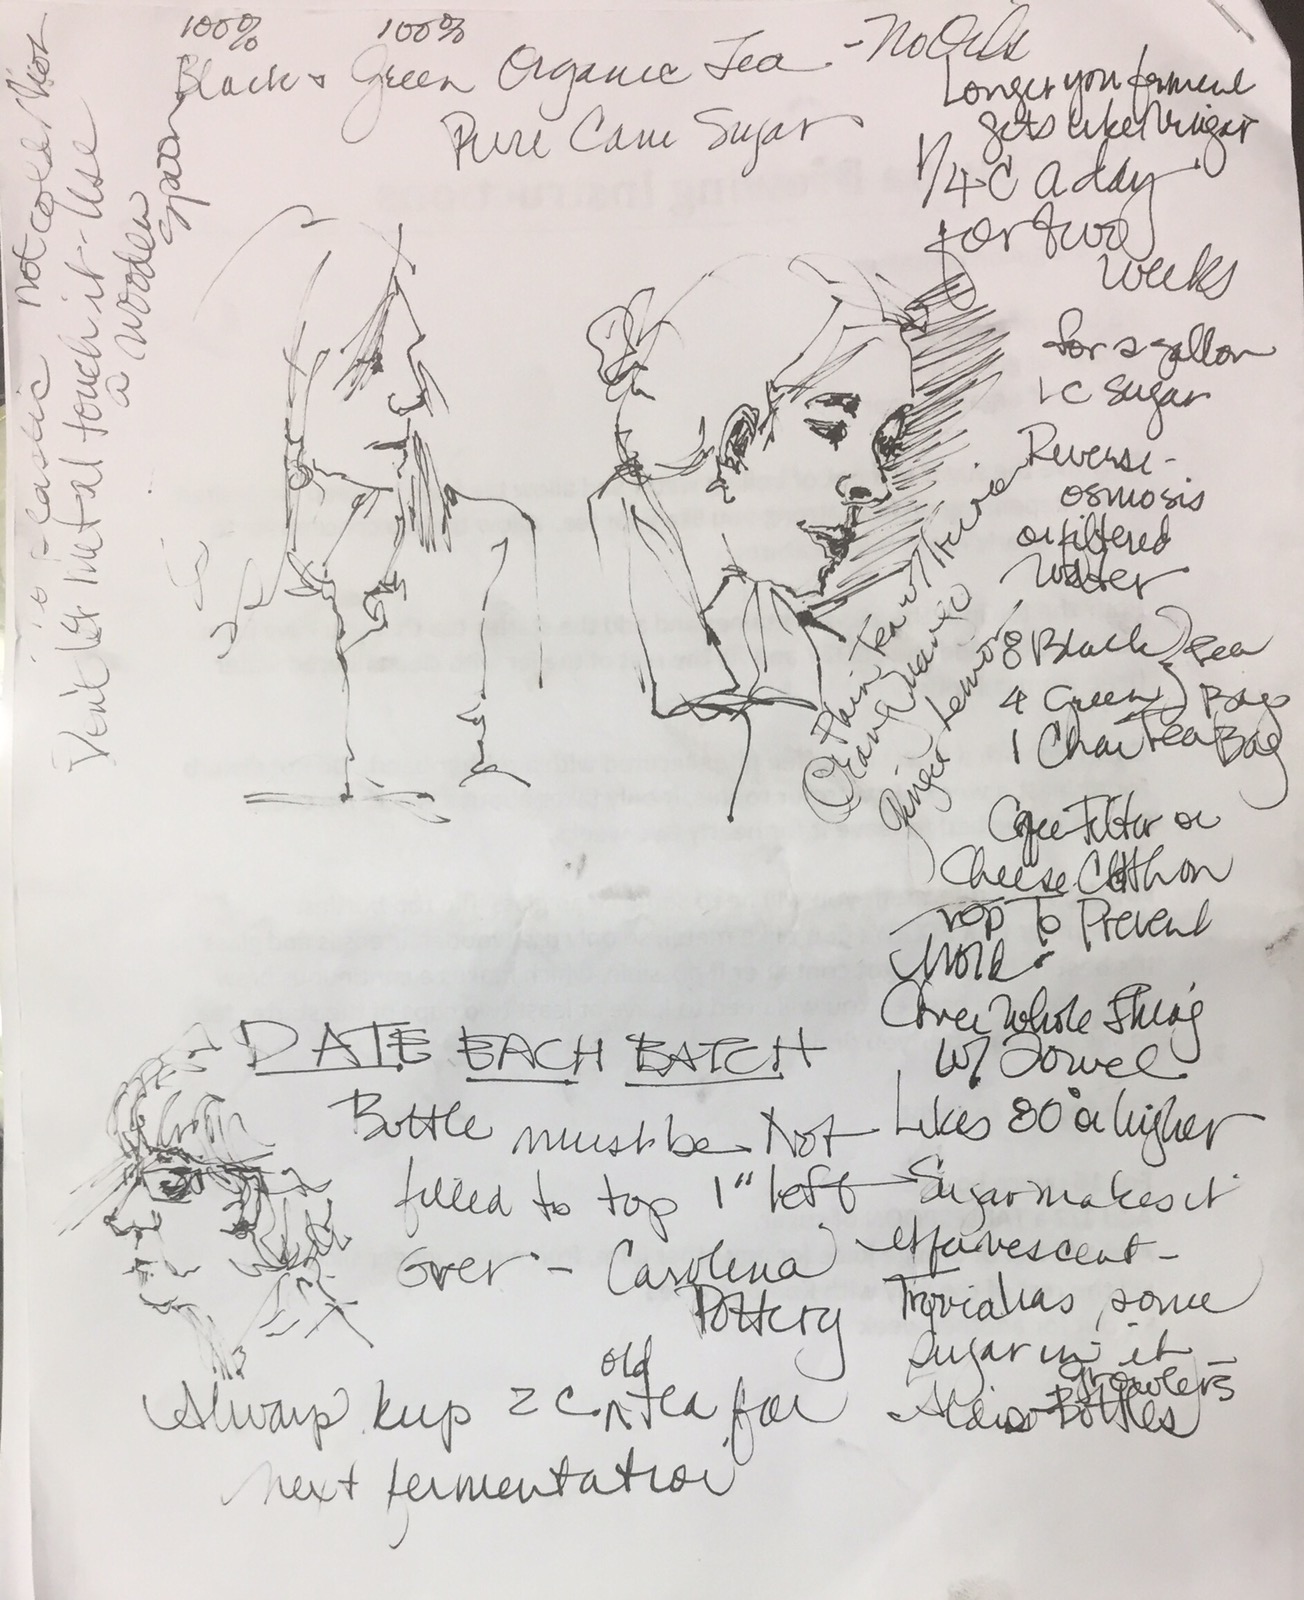 100% 100%
Black & Green Organic Tea - No Oils
Pure Cane Sugar
Longer you ferment
gets like Vinigar
1/4 C a day
for two
weeks
for a gallon
1 C sugar
Reverse-
osmosis
or filtered
Water
8 Black) Tea
4 Green) Bags
1 Chai Tea Bag
Coffee Filter or
Cheese Cloth on
Top To Prevent
Mold.
Cover Whole Thing
w/ Towel
Likes 80° or higher
Sugar makes it
effervescent -
has some
sugar in it
Growlers
Bottles
Plain Tea w/
Orange Mango
Ginger Lemon
not cold
plastic
Don't let metal touch it - Use
a wooden
spoon
DATE EACH BATCH
Bottle must be Not
filled to top 1" left
over - Carolina
Pottery
old
Always keep 2 C ^ Tea for
next fermentation